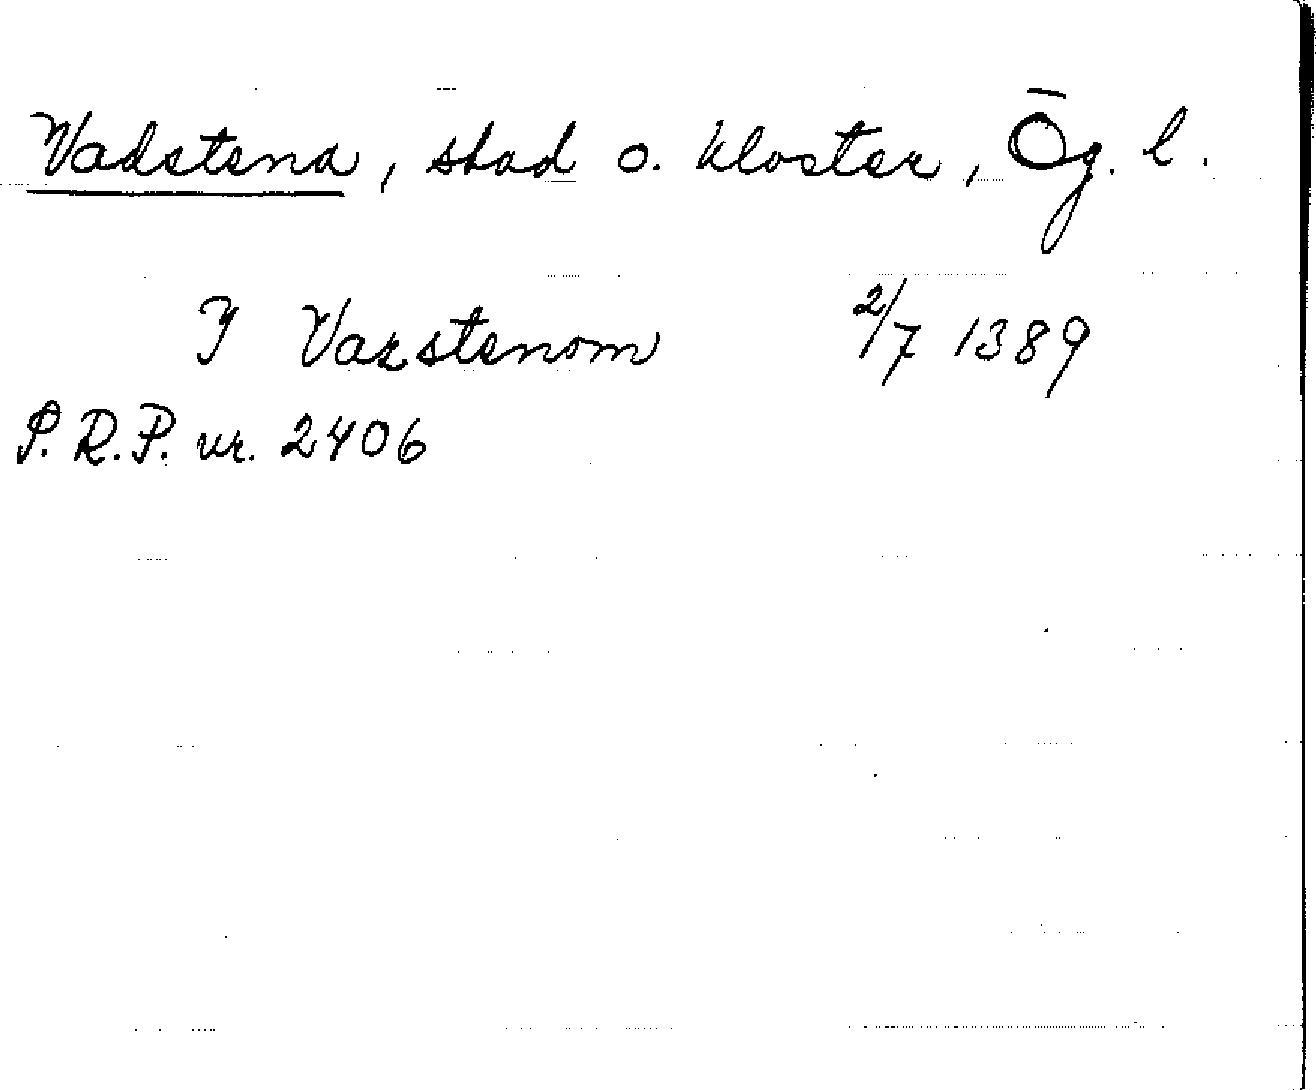 Vadstena, stad o. kloster, Ög. l.
I Vazstenom 2/7 1389
P.R.P. nr. 2406